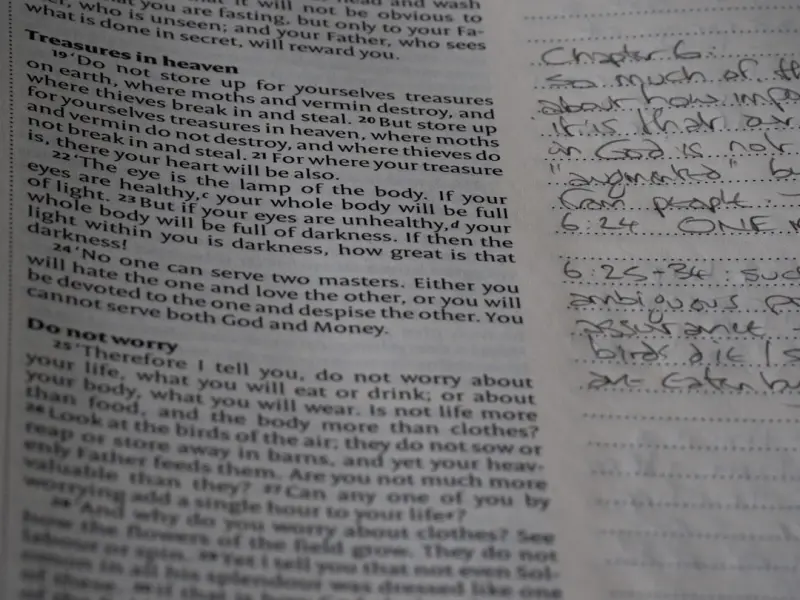 you are fasting, but only to your Fa-
, who is unseen; and your Father, who sees
what is done in secret, will reward you.
Treasures in heaven
19 ‘Do not store up for yourselves treasures
on earth, where moths and vermin destroy, and
where thieves break in and steal. 20 But store up
for yourselves treasures in heaven, where moths
and vermin do not destroy, and where thieves do
not break in and steal. 21 For where your treasure
is, there your heart will be also.
22 ‘The eye is the lamp of the body. If your
eyes are healthy,c your whole body will be full
of light. 23 But if your eyes are unhealthy,d your
whole body will be full of darkness. If then the
light within you is darkness, how great is that
darkness!
24 ‘No one can serve two masters. Either you
will hate the one and love the other, or you will
be devoted to the one and despise the other. You
cannot serve both God and Money.
Do not worry
25 ‘Therefore I tell you, do not worry about
your life, what you will eat or drink; or about
your body, what you will wear. Is not life more
than food, and the body more than clothes?
26 Look at the birds of the air; they do not sow or
reap or store away in barns, and yet your heav-
enly Father feeds them. Are you not much more
valuable than they? 27 Can any one of you by
worrying add a single hour to your life?
28 ‘And why do you worry about clothes? See
how the flowers of the field grow. They do not
labour or spin. 29 Yet I tell you that not even Sol-
omon in all his splendour was dressed like one
of these.
Chapter 6:
So much of
about how
it is that
in God is not
"augmented"
from people
6:24 ONE
6:25-34:
ambiguous
assurance
birds die